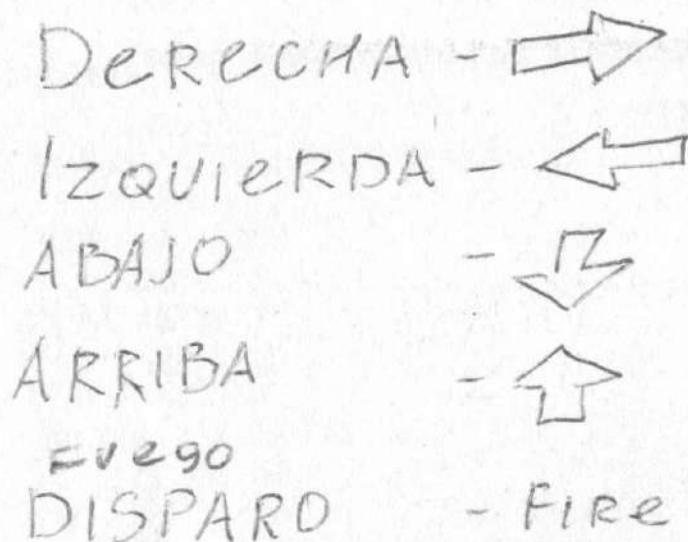 DeReCHA -
IZQUIeRDA -
ABAJO -
ARRIBA -
Fuego
DISPARO - FIRe